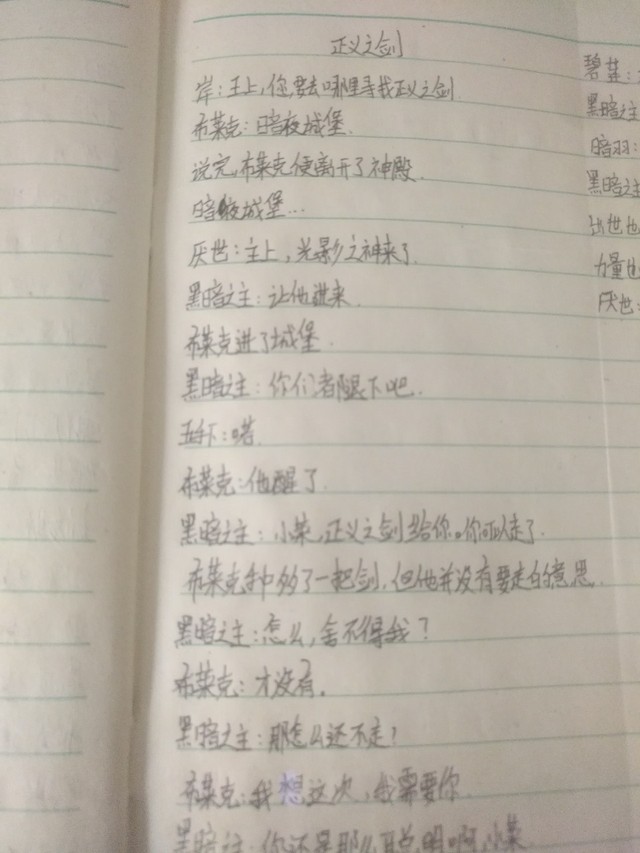 正义之剑
岸：王上，你要去哪里寻找正义之剑
布莱克：暗夜城堡.
说完,布莱克便离开了神殿.
暗夜城堡...
厌世：主上，光影之神来了.
黑暗之主：让他进来.
布莱克进了城堡.
黑暗之主：你们都退下吧.
手下：喏.
布莱克：他醒了.
黑暗之主：小莱,正义之剑给你。你可以走了.
布莱克手中多了一把剑，但他并没有要走的意思.
黑暗之主：怎么，舍不得我？
布莱克：才没有。
黑暗之主：那怎么还不走？
布莱克：我想这次，我需要你.
黑暗之主：你还是那么聪明啊,小莱
黑暗之主
暗羽：
黑暗之主
力量也
厌世：